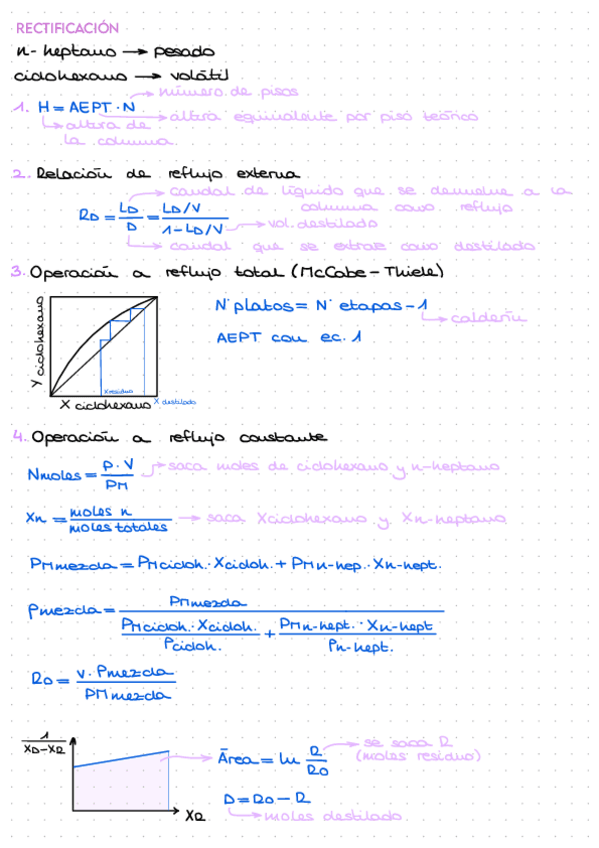 RECTIFICACIÓN
n-heptano → pesado
ciclohexano → volátil
número de pisos
1. H = AEPT · N
altura equivalente por piso teórico
altura de
la columna
2. Relación de reflujo externa
caudal de líquido que se devuelve a la
columna como reflujo
RD = LD/D = (LD/V)/(1-LD/V)
vol. destilado
caudal que se extrae como destilado
3. Operación a reflujo total (McCabe-Thiele)
Y ciclohexano
Xresiduo
X ciclohexano
X destilado
Nº platos = Nº etapas - 1
calderín
AEPT con ec. 1
4. Operación a reflujo constante
Nmoles = ρ · V / PM
saca moles de ciclohexano y n-heptano
Xn = moles n / moles totales
saca Xciclohexano y Xn-heptano
PMmezcla = PMcicloh. · Xcicloh. + PMn-hep. · Xn-hept.
ρmezcla = PMmezcla / (PMcicloh. · Xcicloh. / ρcicloh. + PMn-hept. · Xn-hept / ρn-hept.)
R0 = V · ρmezcla / PMmezcla
1 / XD-XR
XR
Área = ln R/R0
se saca R
(moles residuo)
D = R0 - R
moles destilado